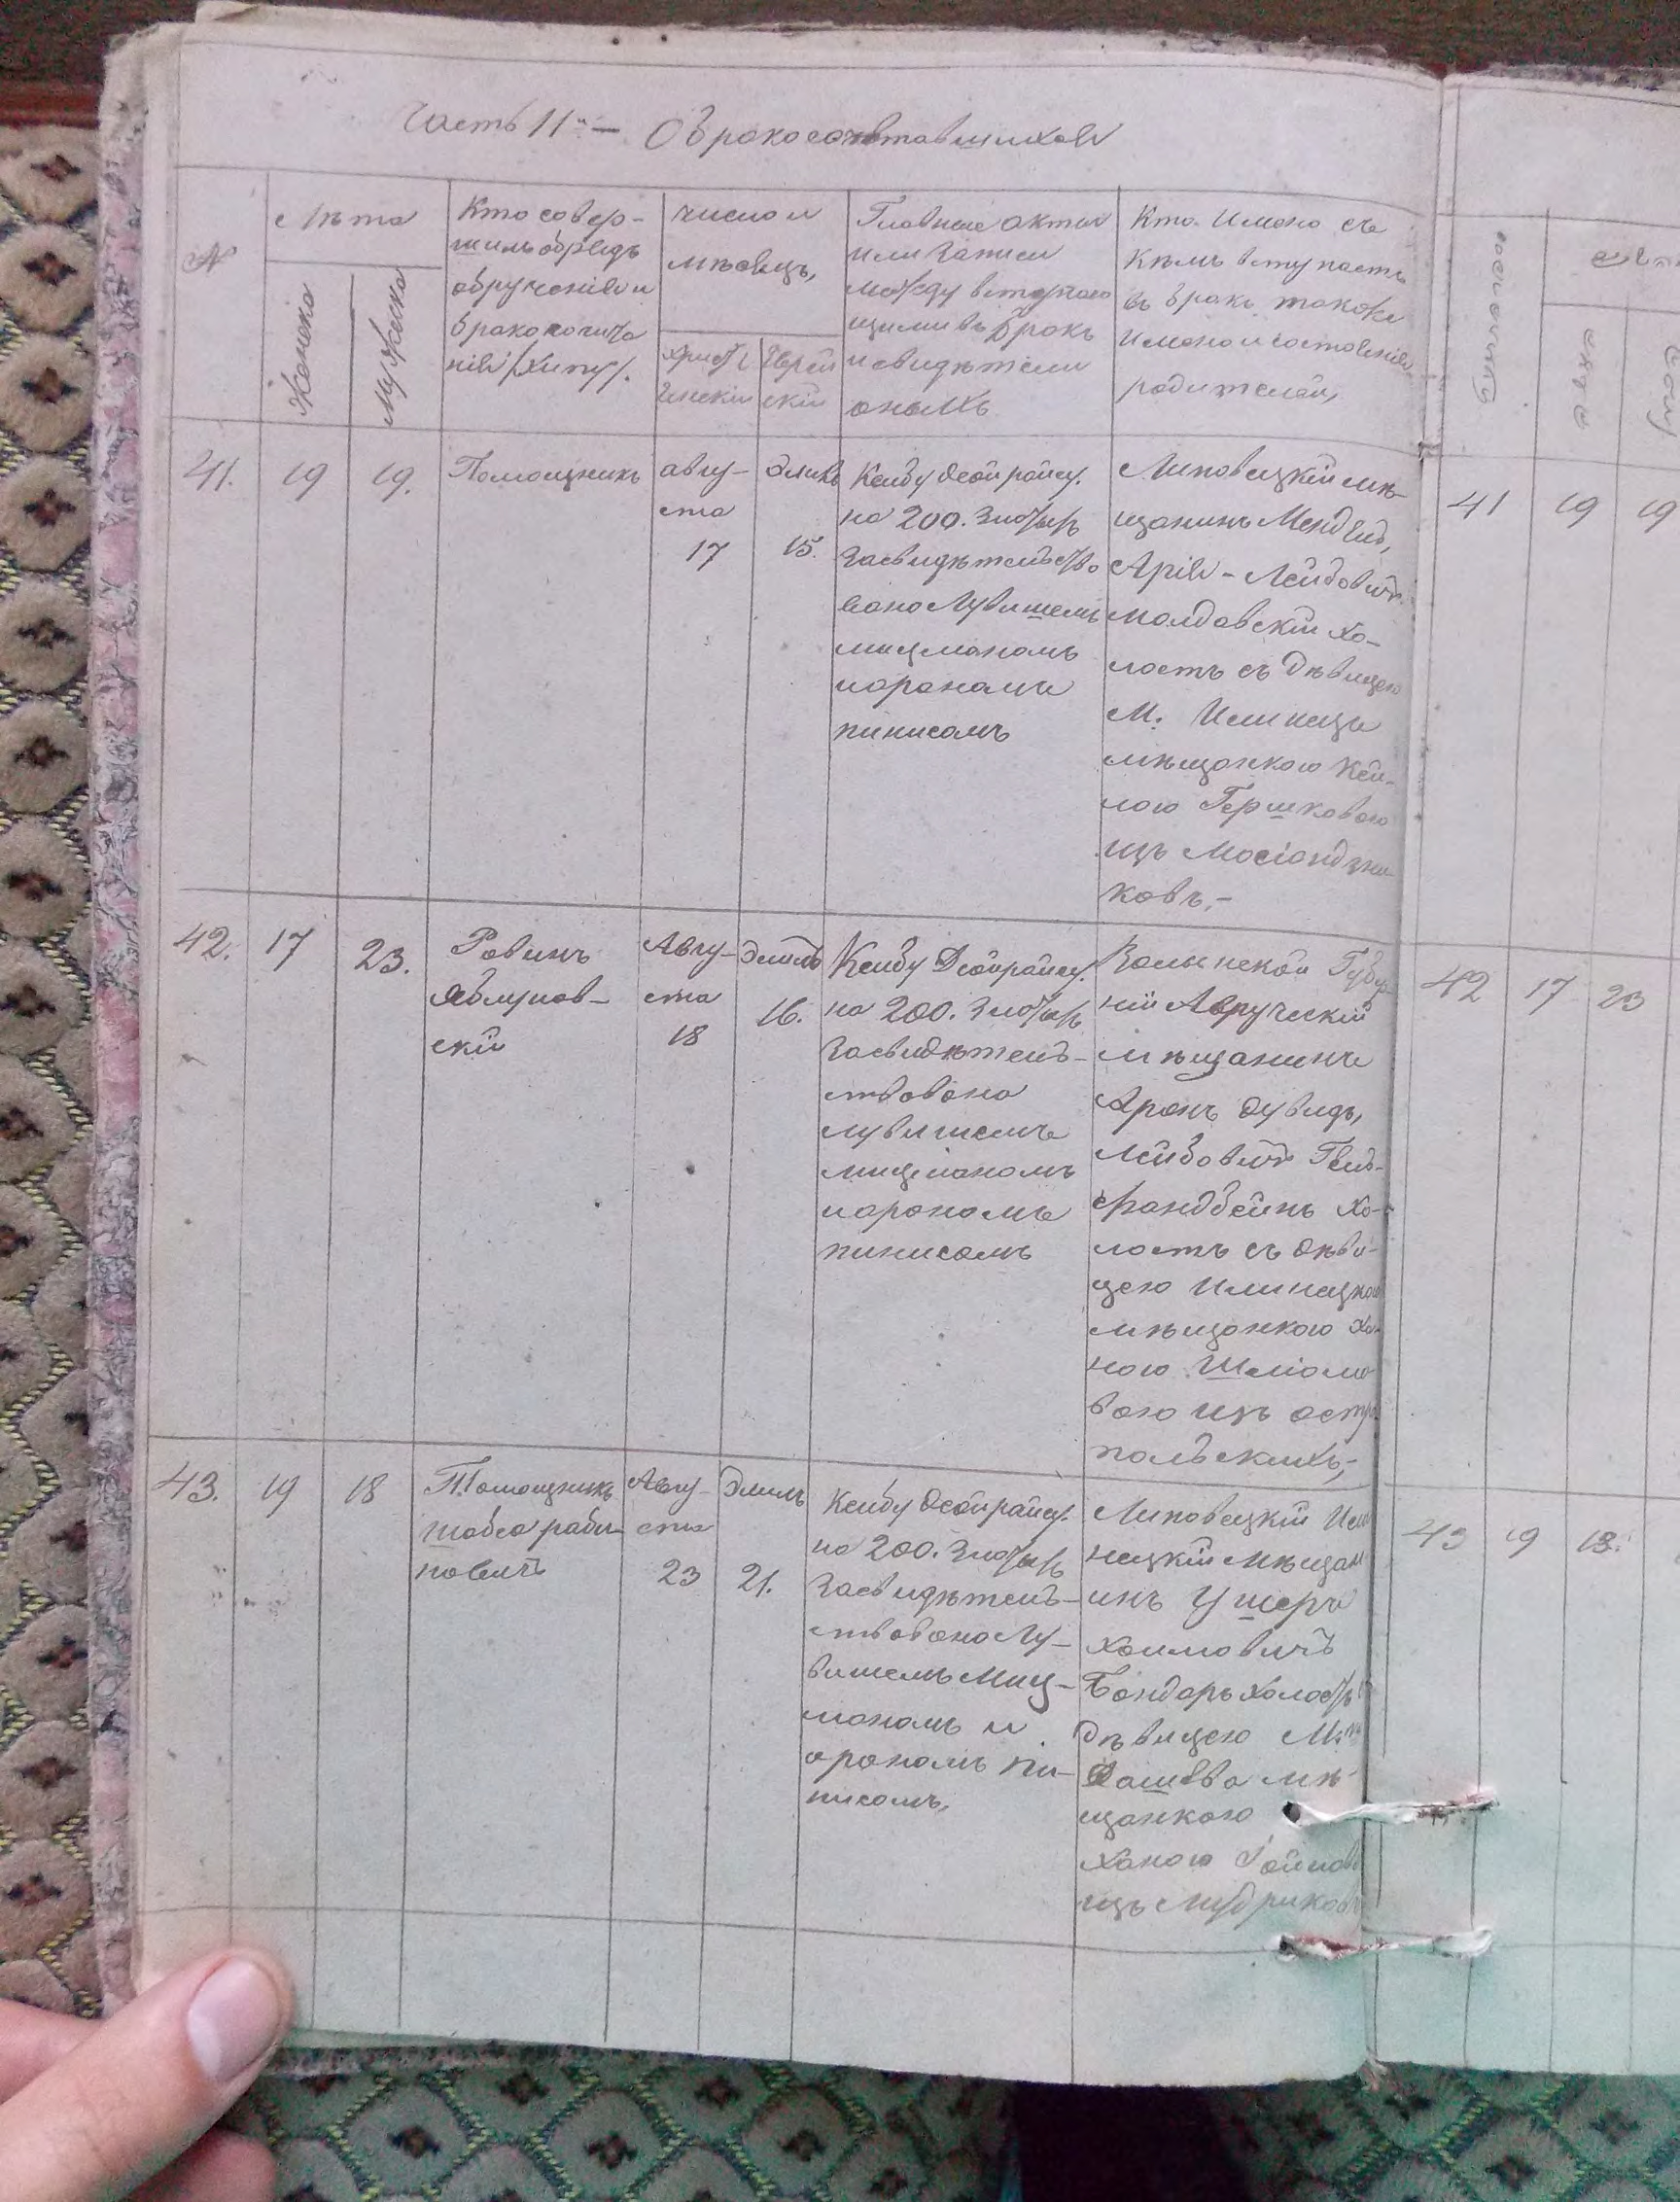 Часть II я — О бракосочетавшихся
№
Лета
Женска
Мужеска
Кто совер-
шилъ обрядъ
обрученія и
бракосочета
нія /Хипу/.
Число и
мѣсяцъ,
Христі
янскій
Еврей
скій
Главные акты
или записи
между вступаю
щими въ бракъ
и свидѣтели
оныхъ
Кто. Имено съ
Кѣмъ вступаетъ
въ бракъ также
имена и состоянія
родителей,
41.
19
19.
Помощникъ
авгу-
ста
17
Элиль
15.
Ксибу Деойрайсу.
на 200. злотыхъ
засвидѣтельство
вано Лувишемъ
Мицманомъ
иараномъ
пинисомъ
Липовецкій мѣ-
щанинъ Мендель,
Арія - Лейбовичъ
Молдавскій хо-
лостъ съ дѣвицею
М. Илинецъ
мѣщанкою Кей-
лою Гершковою
изъ Мосіондзни-
ковъ,-
42.
17
23.
Равинъ
Яблунов-
скій
Авгу-
ста
18
Элиль
16.
Ксибу Деойрайсу.
на 200. злотыхъ
засвидѣтель-
ствовано
лувишемъ
мицманомъ
иарономъ
пинисомъ
Волынской Губер
ніи Авручскій
мѣщанинъ
Аронъ Дувидъ,
Лейбовичъ Гель-
фандбейнъ хо-
лостъ съ дѣви-
цею Илинецкою
мѣщанкою Ха-
ною Шліомо
вою изъ остро
польскихъ,-
43.
19
18
Помощникъ
шабса раби-
новичъ
Авгу-
ста
23
Элиль
21.
Ксибу Деойрайсу.
на 200. злотыхъ
засвидѣтель-
ствовано Лу-
вишемъ Миц-
маномъ и
арономъ пи-
нисомъ,
Липовецкій Или
нецкій мѣщан
инъ Ушеръ
Хаимовичъ
Бондаръ холостъ
дѣвицею М.
Дашева мѣ-
щанкою
Ханою
изъ Мудриковъ
41
19
19
42
17
23
43
19
18.